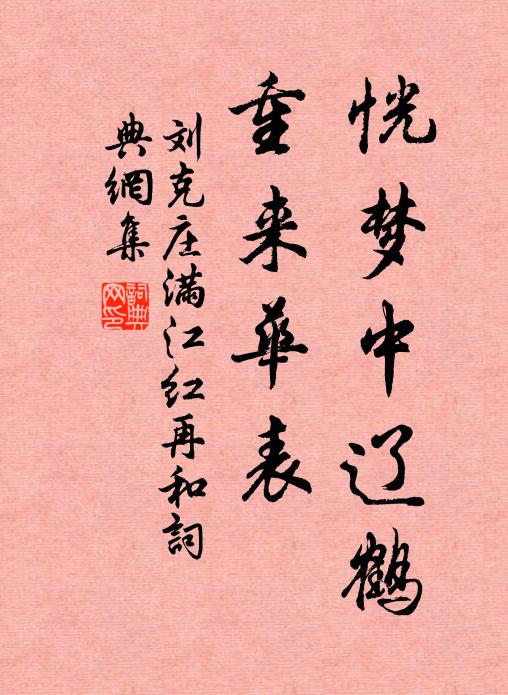 恍梦中辽鹤
重来华表
刘克庄满江红再和詞
典網集
詞典网印